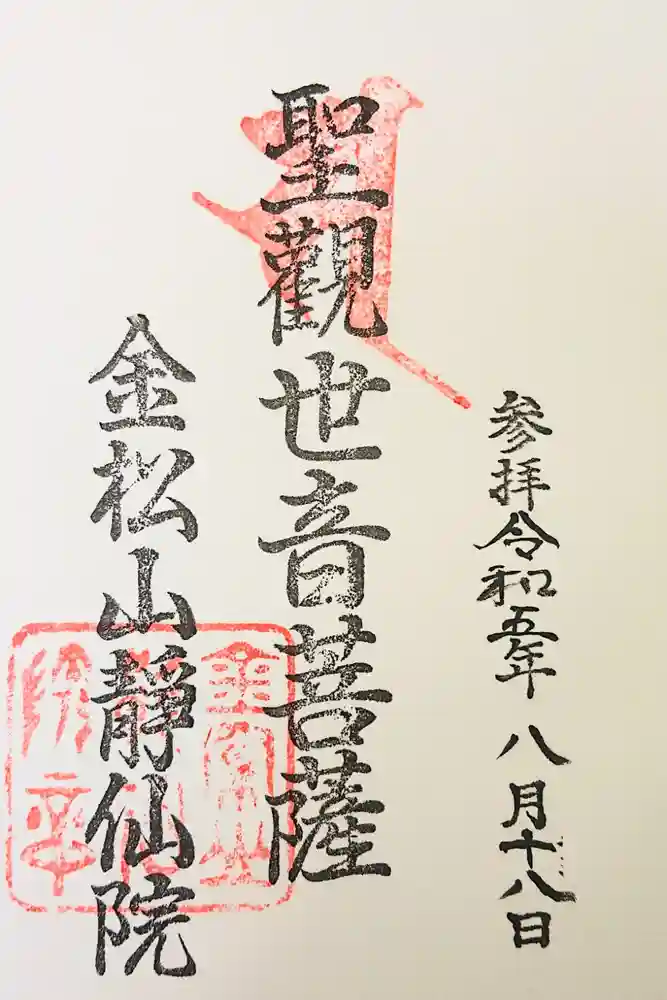 参拝令和五年 八月十八日
聖觀世音菩薩
金松山靜仙院